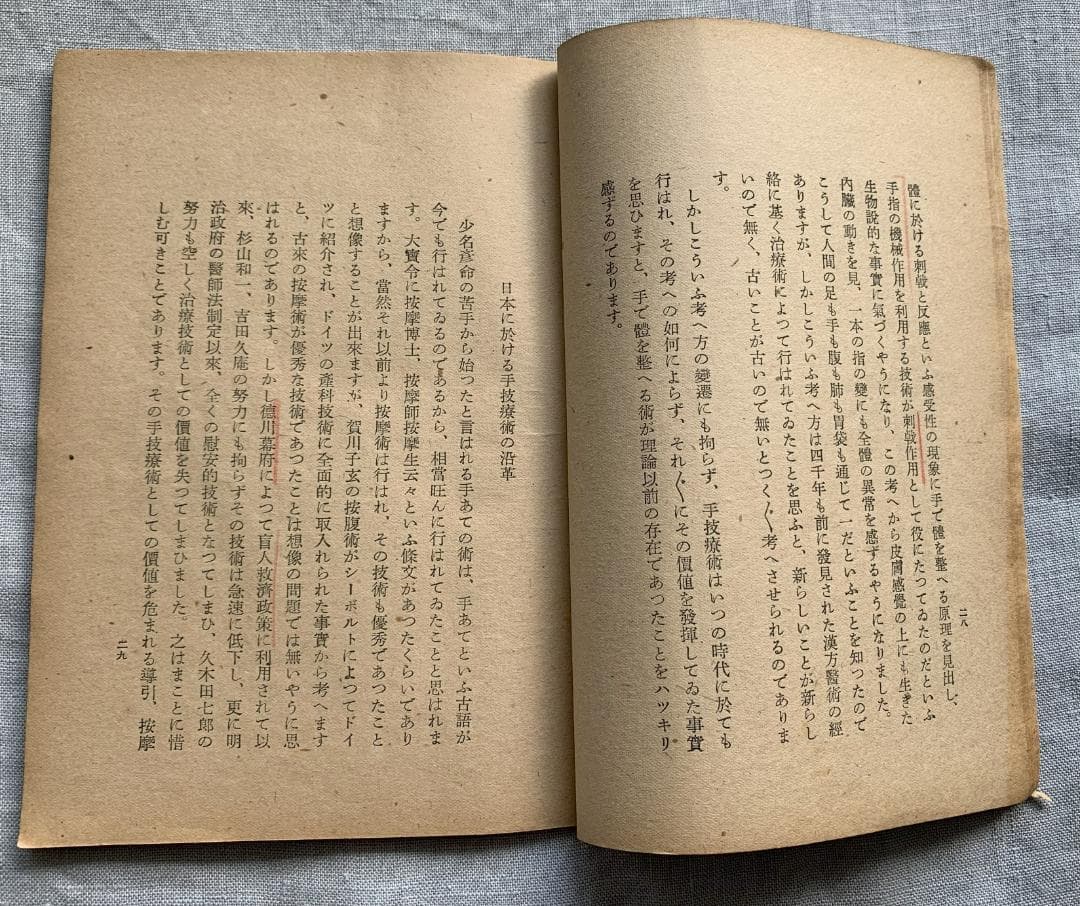 體に於ける刺戟と反應といふ感受性の現象に手で體を整へる原理を見出し、
手指の機械作用を利用する技術が刺戟作用として役にたつてゐたのだといふ
生物説的な事實に氣づくやうになり、この考へから皮膚感覺の上にも生きた
內臟の動きを見、一本の指の變にも全體の異常を感ずるやうになりました。
こうして人間の足も手も腹も肺も胃袋も通じて一だといふことを知つたので
ありますが、しかしこういふ考へ方は四千年も前に發見された漢方醫術の經
絡に基く治療術によつて行はれてゐたことを思ふと、新らしいことが新らし
いので無く、古いことが古いので無いとつく〴〵考へさせられるのでありま
す。
しかしこういふ考へ方の變遷にも拘らず、手技療術はいつの時代に於ても
行はれ、その考への如何によらず、それ〴〵にその價値を發揮してゐた事實
を思ひますと、手で體を整へる術が理論以前の存在であつたことをハツキリ
感ずるのであります。
二八
日本に於ける手技療術の沿革
少名彥命の苦手から始つたと言はれる手あての術は、手あてといふ古語が
今でも行はれてゐるのであるから、相當旺んに行はれてゐたことと思はれま
す。大寶令に按摩博士、按摩師按摩生云々といふ條文があつたくらいであり
ますから、當然それ以前より按摩術は行はれ、その技術も優秀であつたこと
と想像することが出來ますが、賀川子玄の按腹術がシーボルトによつてドイ
ツに紹介され、ドイツの產科技術に全面的に取入れられた事實から考へます
と、古來の按摩術が優秀な技術であつたことは想像の問題では無いやうに思
はれるのであります。しかし德川幕府によつて盲人救濟政策に利用されて以
來、杉山和一、吉田久庵の努力にも拘らずその技術は急速に低下し、更に明
治政府の醫師法制定以來、全くの慰安的技術となつてしまひ、久木田七郎の
努力も空しく治療技術としての價値を失つてしまひました。之はまことに惜
しむ可きことであります。その手技療術としての價値を危まれる導引、按摩
二九